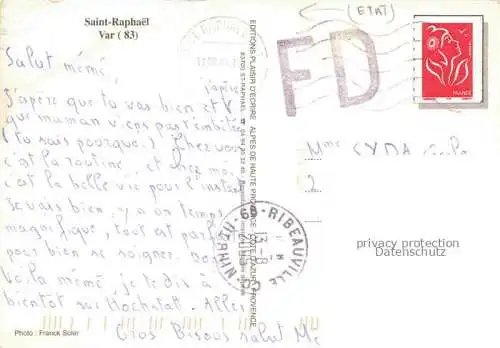 Saint-Raphaël
Var ( 83)
(ETAT)
FD
FRANCE
Salut mémé,
J'espère que tu vas bien et
que maman viens pas t'embêter
(tu sais pourquoi) Chez vous
c'est la routine, et chez moi,
c'est la belle vie pour l'instant
Je vais bien, y a un temps
magnifique, tout est parfait
pour bien se soigner. Bon
Voila mémé, je te dis à
bientôt sur Hochstatt. Allez
Gros Bisous salut
Mme
2
EDITIONS PLAISIR D'ECRIRE ALPES DE HAUTE PROVENCE - COTE D'AZUR - PROVENCE
83700 ST-RAPHAEL
68-RIBEAUVILLE
HT-RHIN
13-8
privacy protection
Datenschutz
Photo : Franck Soler